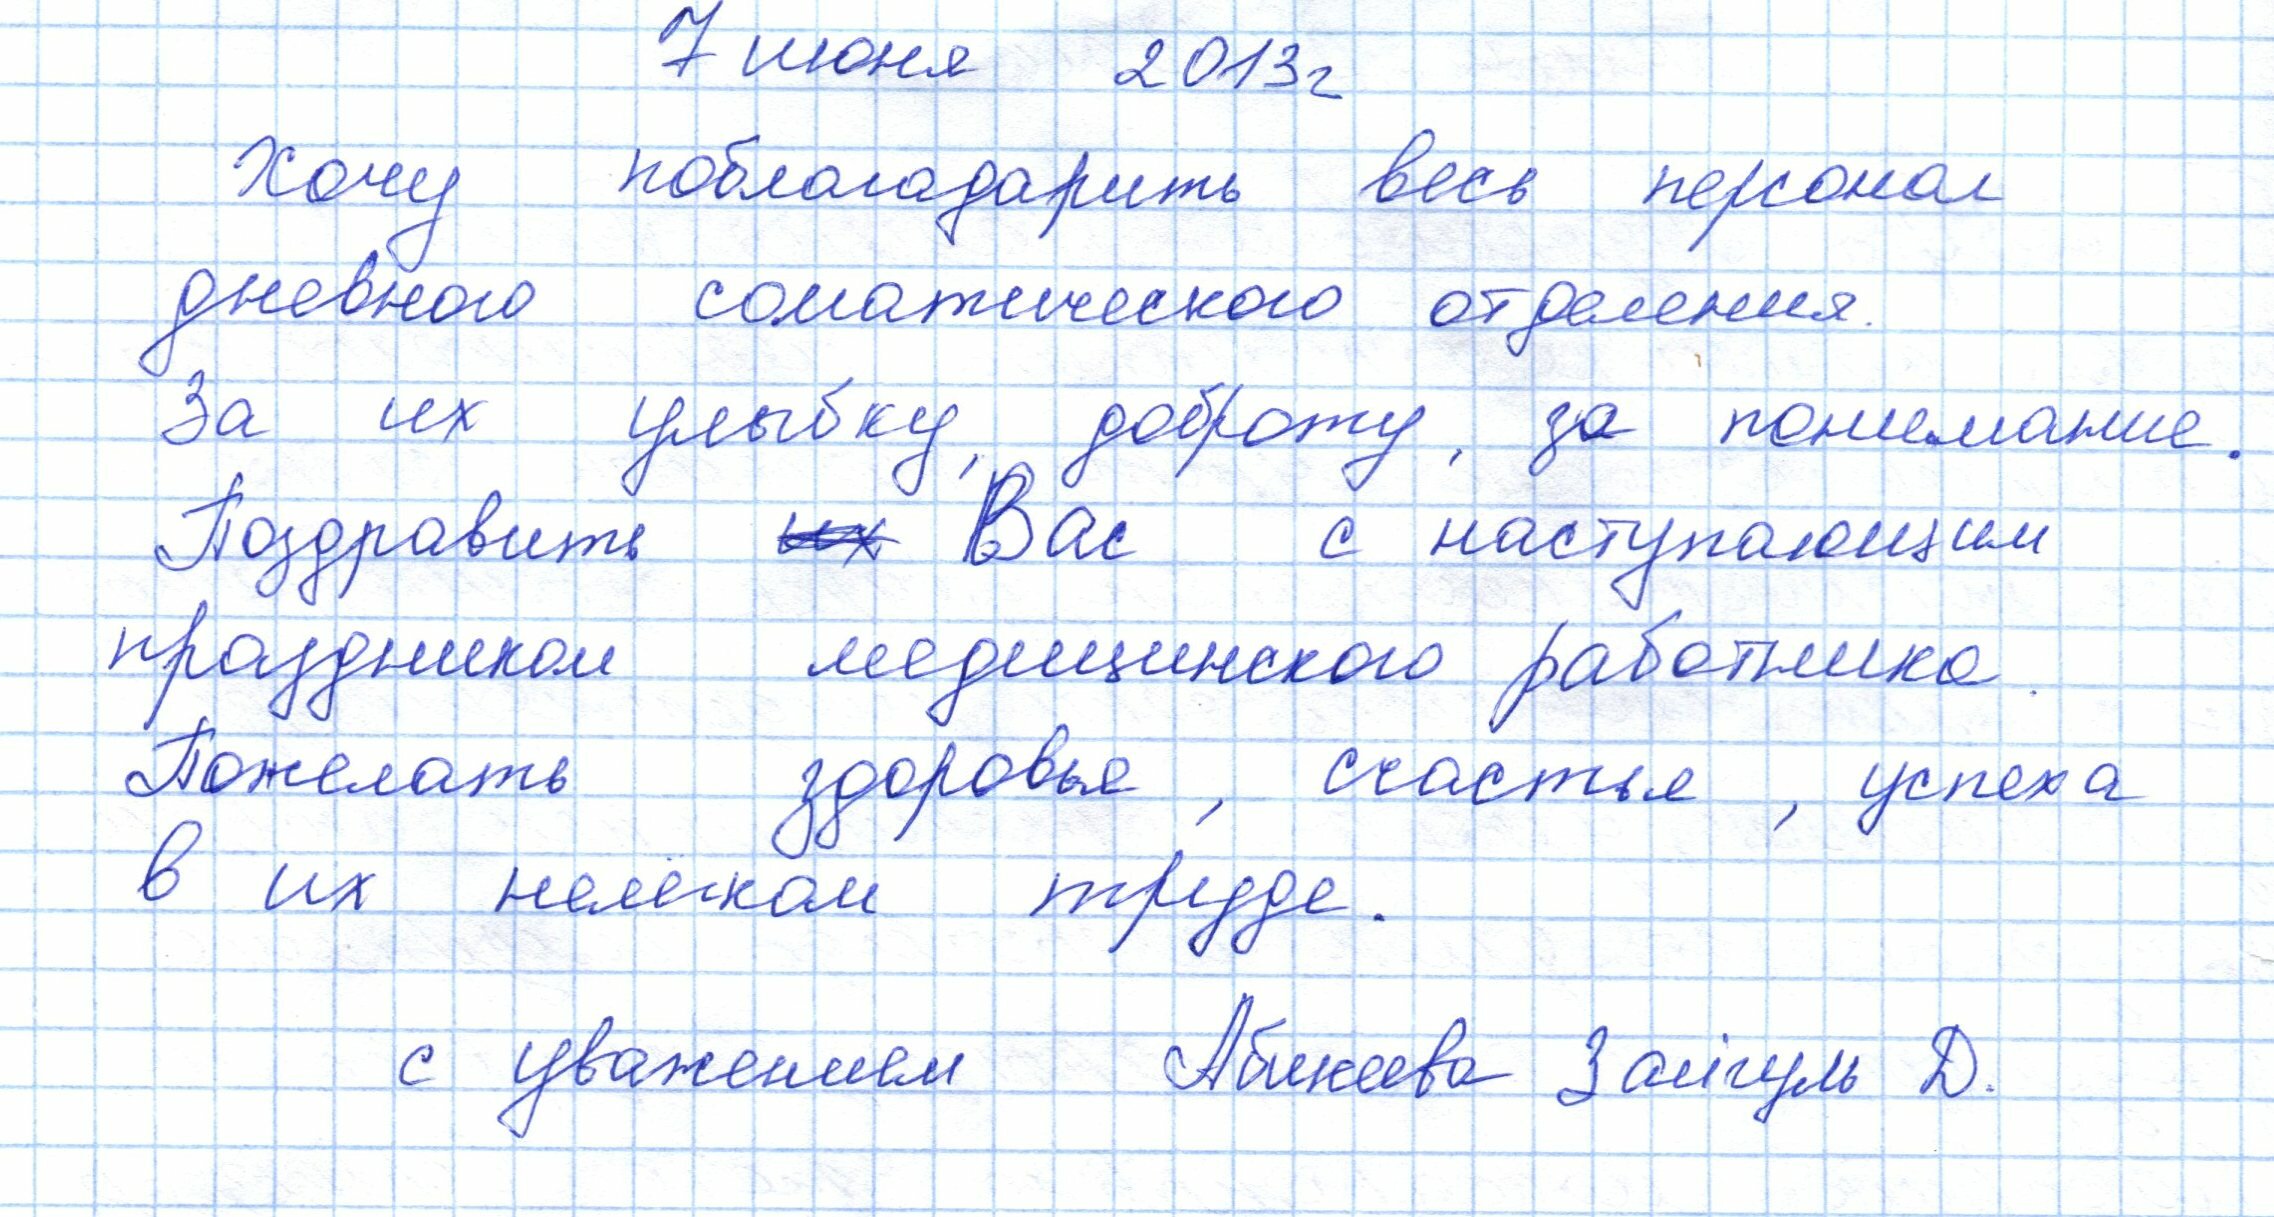 7 июня 2013г
Хочу поблагадарить весь персонал
дневного соматического отделения.
За их улыбку, доброту, за понимание.
Поздравить их Вас с наступающим
праздником медицинского работника.
Пожелать здоровья, счастья, успеха
в их нелегком трудде.
с уважением Абикеева Зайгуль Д.